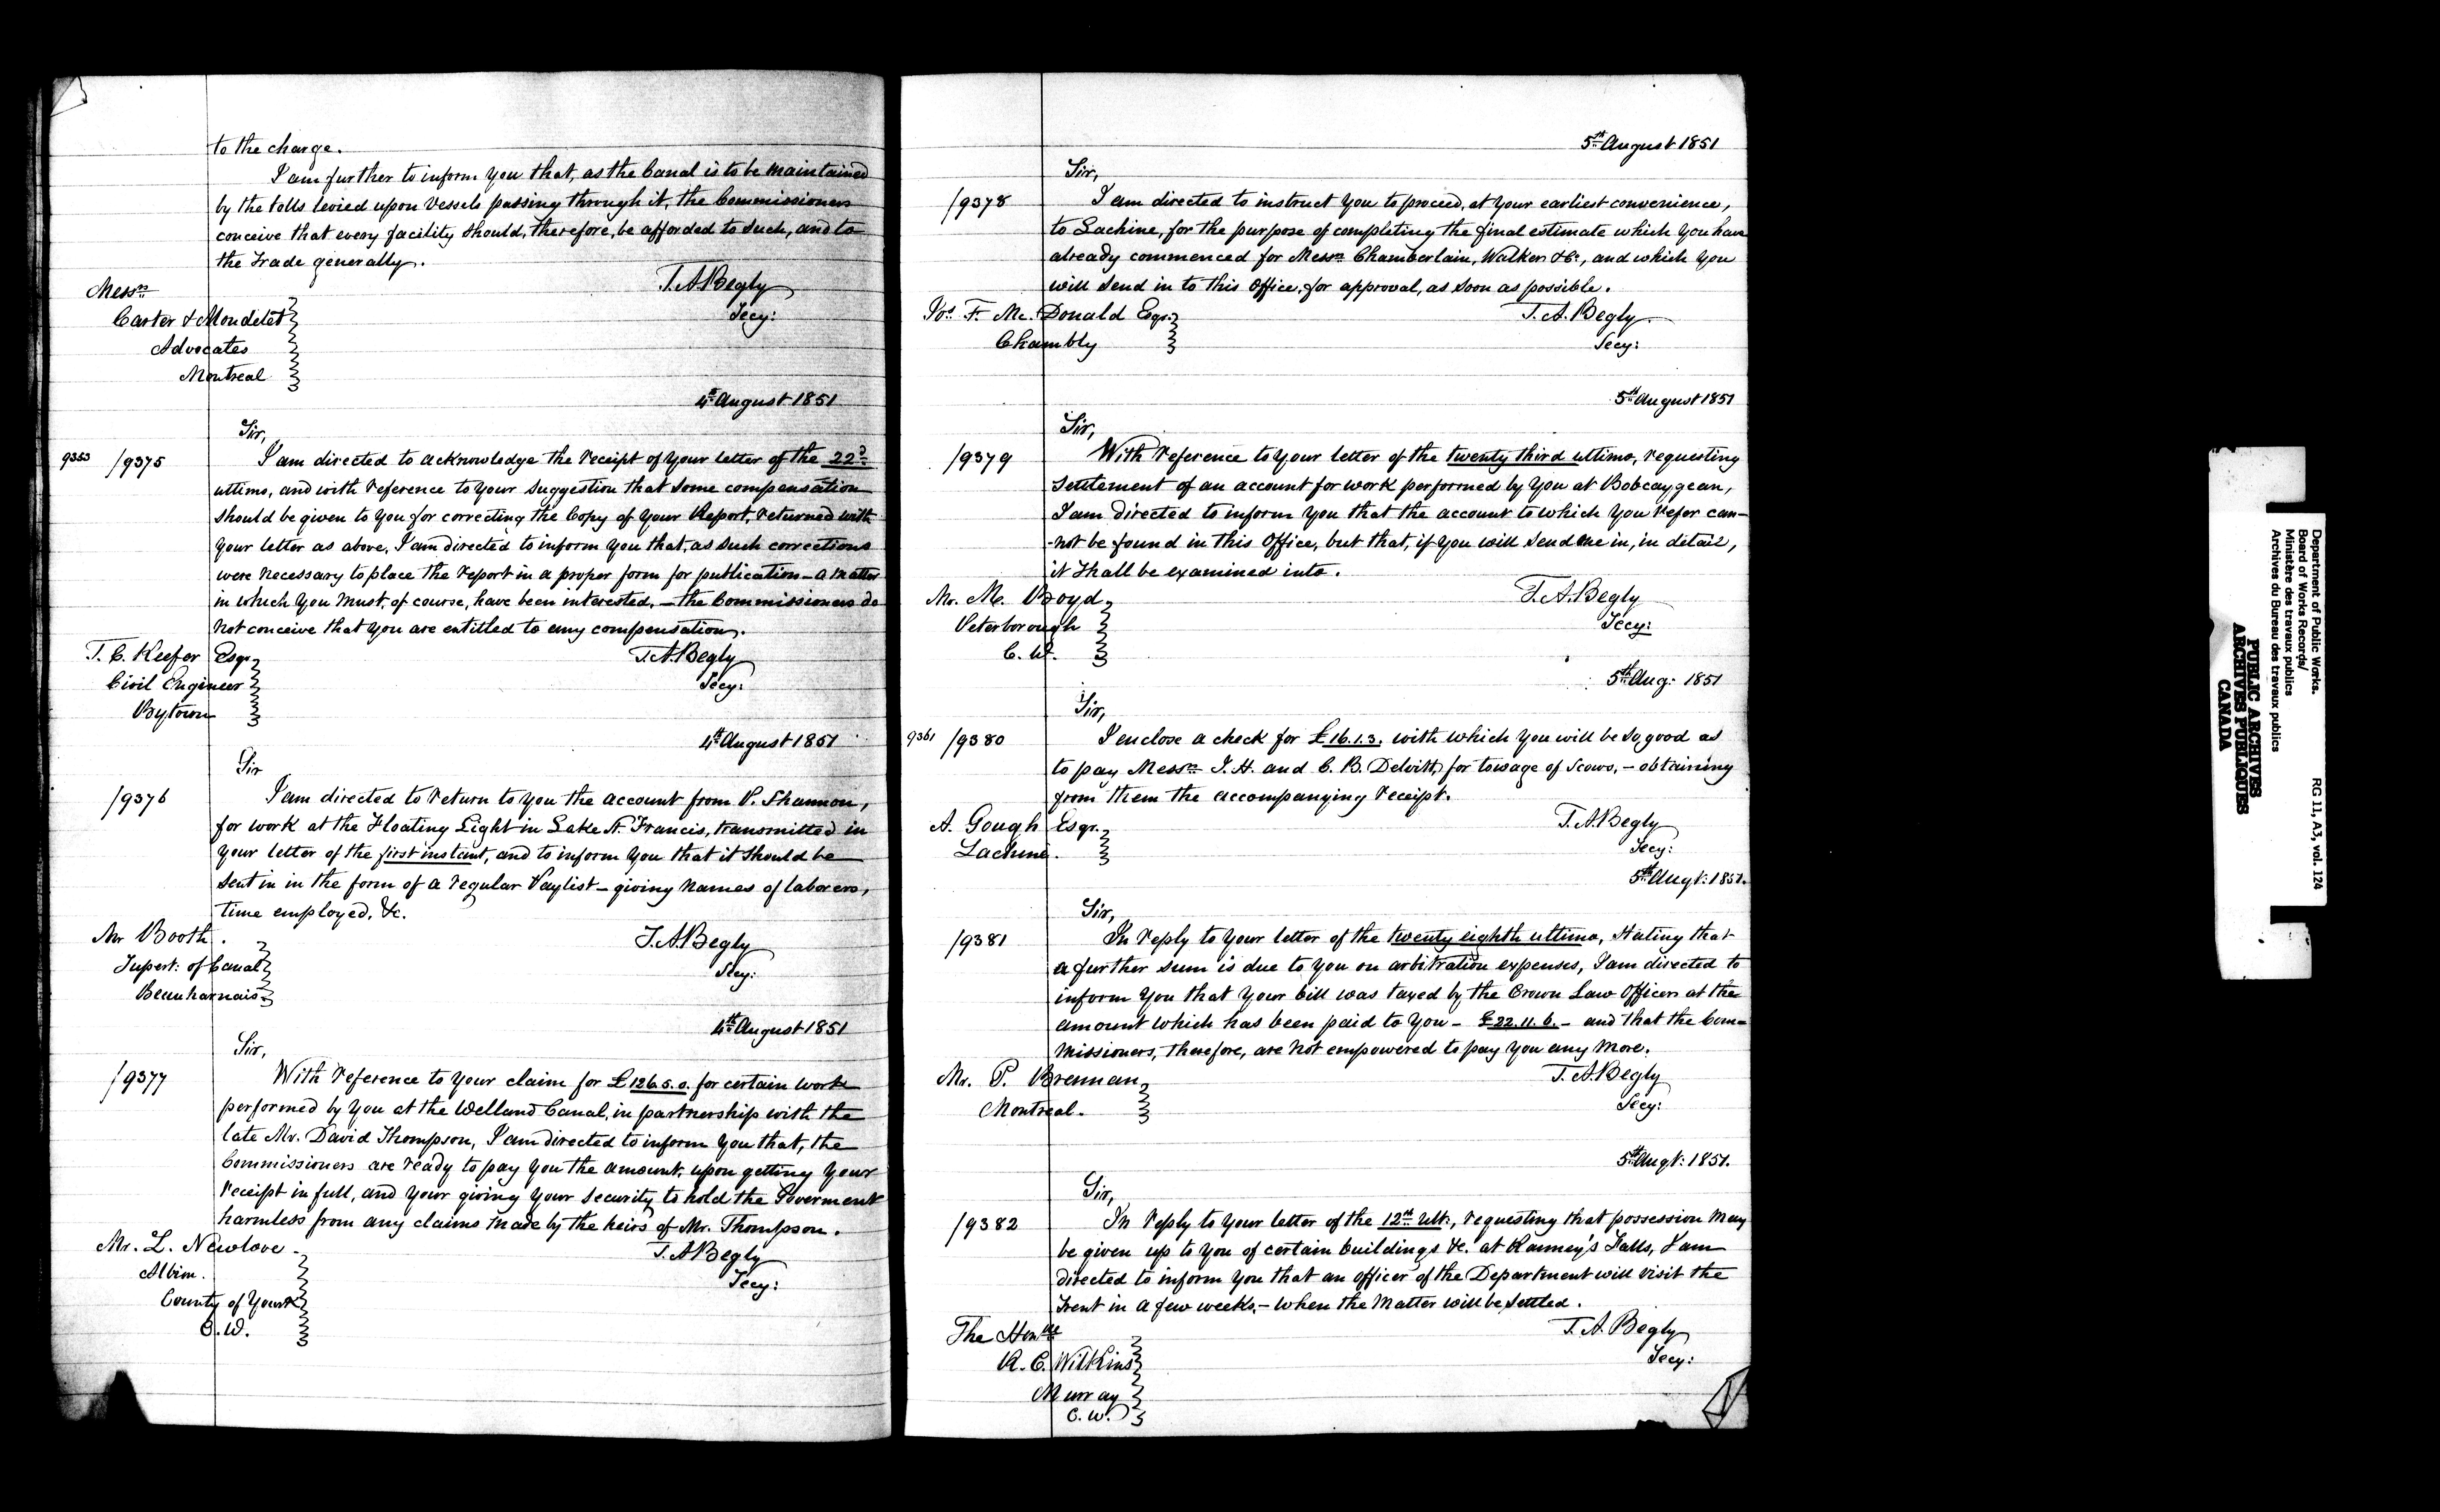 to the charge.
I am further to inform you that, as the Canal is to be maintained
by the tolls levied upon Vessels passing through it, the Commissioners
conceive that every facility should, therefore, be afforded to such, and to
the Trade generally.
T. A. Begly
Secy:
Messrs
Carter & Mondelet
Advocates
Montreal
4th August 1851
Sir,
9353 /9375 I am directed to acknowledge the receipt of your letter of the 22d
ultimo, and with reference to your suggestion that some compensation
should be given to you for correcting the Copy of your Report, returned with
your letter as above, I am directed to inform you that, as such corrections
were necessary to place the report in a proper form for publication – a matter
in which you must, of course, have been interested, – the Commissioners do
not conceive that you are entitled to any compensation.
T. C. Keefer Esqr.
Civil Engineer
Bytown
T. A. Begly
Secy:
4th August 1851
Sir
/9376 I am directed to return to you the account from P. Shannon,
for work at the Floating Light in Lake St. Francis, transmitted in
your letter of the first instant, and to inform you that it should be
sent in in the form of a regular Paylist – giving names of laborers,
time employed, &c.
Mr Booth.
Supert: of Canal
Beauharnois
T. A. Begly
Secy:
4th August 1851
Sir,
/9377 With reference to your claim for £126.5.0. for certain work
performed by you at the Welland Canal, in partnership with the
late Mr. David Thompson, I am directed to inform you that, the
Commissioners are ready to pay you the amount, upon getting your
receipt in full, and your giving your security to hold the Goverment
harmless from any claims made by the heirs of Mr. Thompson.
Mr. L. Newlove
Albion.
County of York
C. W.
T. A. Begly
Secy:
5th August 1851
Sir,
/9378 I am directed to instruct you to proceed, at your earliest convenience,
to Lachine, for the purpose of completing the final estimate which you have
already commenced for Messrs Chamberlain, Walker &c., and which you
will send in to this Office, for approval, as soon as possible.
F. Mc. Donald Esqr.
Chambly
T. A. Begly.
Secy:
5th August 1851
Sir,
/9379 With reference to your letter of the twenty third ultimo, requesting
settlement of an account for work performed by you at Bobcaygean,
I am directed to inform you that the account to which you refer can-
-not be found in this Office, but that, if you will send one in, in detail,
it shall be examined into.
Mr. M. Boyd
Peterborough
C. W.
T. A. Begly
Secy:
5th Aug: 1851
Sir,
9361 /9380 I enclose a check for £16.1.3. with which you will be so good as
to pay Messrs I. H. and C. B. Delvitt, for towage of Scows, – obtaining
from them the accompanying receipt.
A. Gough Esqr.
Lachine.
T. A. Begly
Secy:
5th Augt: 1851.
Sir,
/9381 In reply to your letter of the twenty eighth ultimo, stating that
a further sum is due to you on arbitration expenses, I am directed to
inform you that your bill was taxed by the Crown Law Officers at the
amount which has been paid to you – £22.11.6. – and that the Com-
missioners, therefore, are not empowered to pay you any more.
Mr. P. Brennan
Montreal.
T. A. Begly
Secy:
5th Augt: 1851.
Sir,
/9382 In reply to your letter of the 12th Ult:, requesting that possession may
be given up to you of certain buildings &c. at Ranney's Falls, I am
directed to inform you that an officer of the Department will visit the
Trent in a few weeks, – when the matter will be settled.
The Honble
R. C. Wilkins
Murray
C. W.
T. A. Begly
Secy:
Department of Public Works.
Board of Works Records/
Ministère des travaux publics
Archives du Bureau des travaux publics
RG 11, A3, vol. 124
PUBLIC ARCHIVES
ARCHIVES PUBLIQUES
CANADA